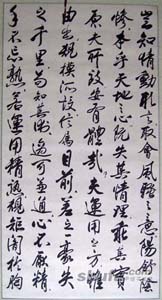 豈知情動形言取會風騷之意陽舒陰
慘本乎天地之心既失其情理乖其實
原夫所致安有體哉夫運用之方雖
由己出規模所設信屬目前差之一豪失
之千里苟知其術適可兼通心不厭精
手不忘熟若運用精熟規矩闇於胸